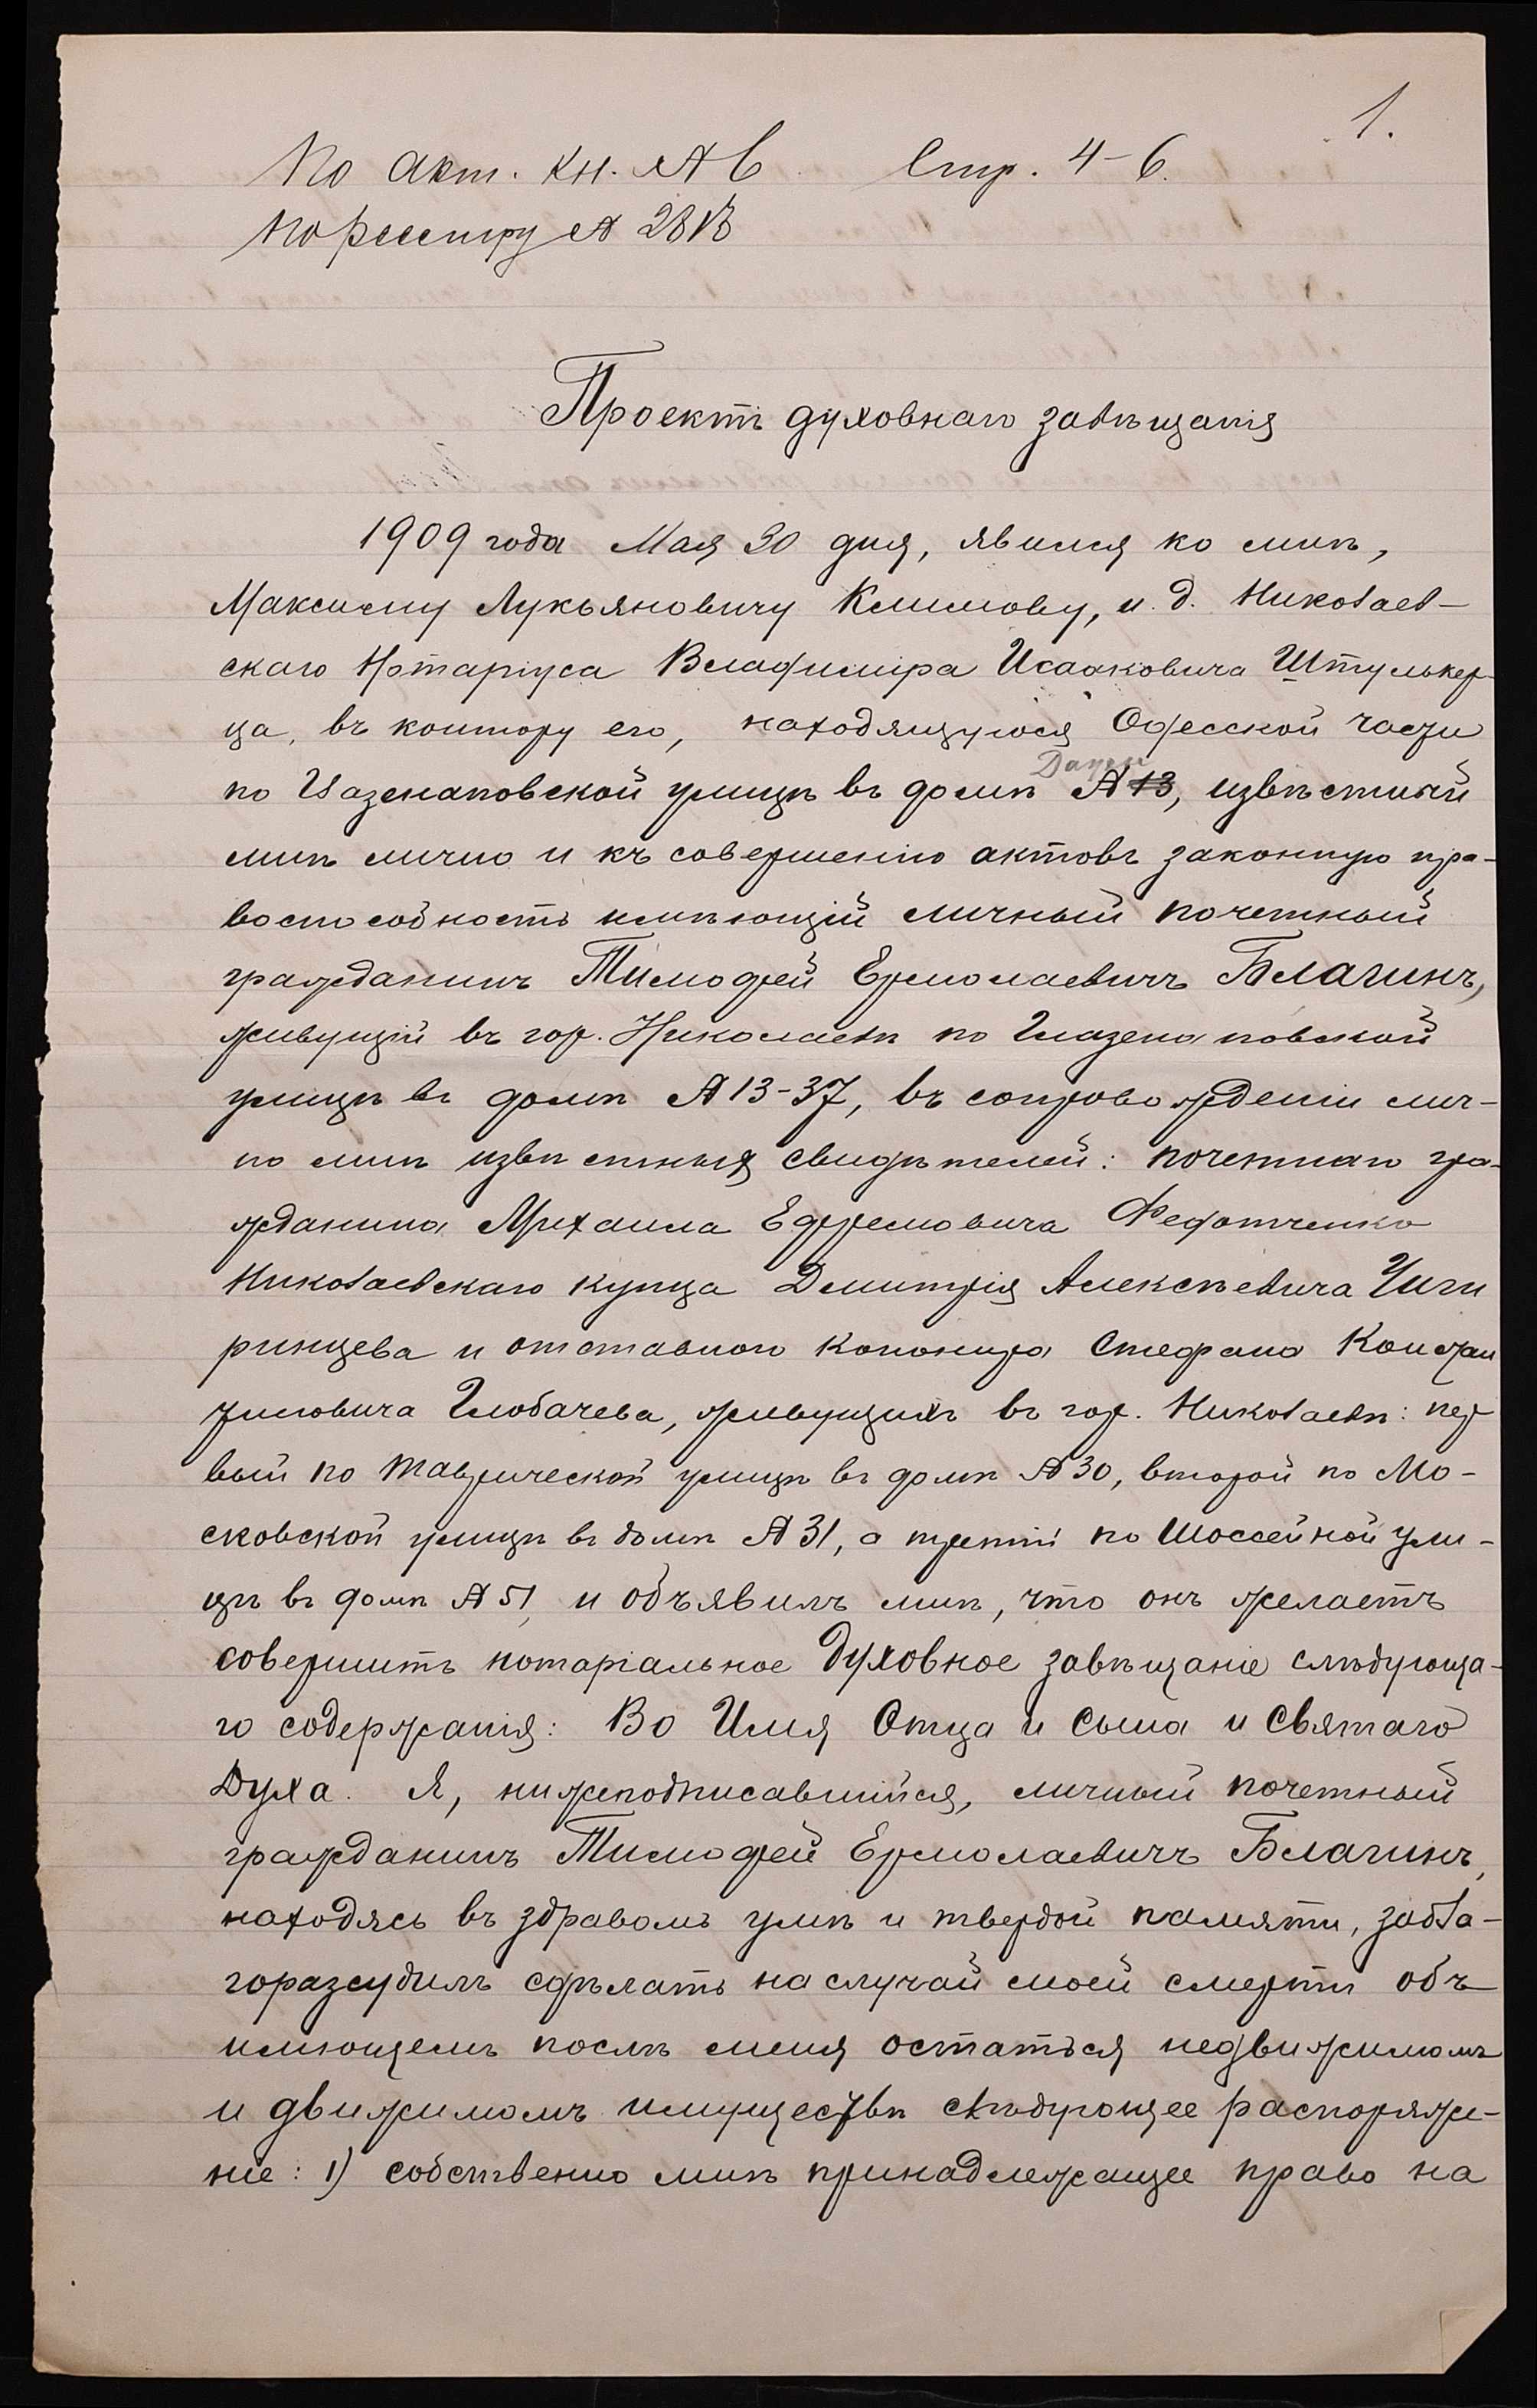 1.
По акт. кн. № 6 Стр. 4-6.
по реестру №
Проектъ духовнаго завѣщанія
1909 года Мая 30 дня, явился ко мнѣ,
Максиму Лукьяновичу Климову, и. д. Николаев-
скаго Нотаріуса Владиміра Исааковича Штулькер-
ца, въ контору его, находящуюся Одесской части
по Глазенаповской улицѣ въ домѣ № 13, извѣстный
мнѣ лично и къ совершенію актовъ законную пра-
воспособность имѣющій личный почетный
гражданинъ Тимофей Ермолаевичъ Благинъ,
живущій въ гор. Николаевѣ по Глазенаповской
улицѣ въ домѣ № 13-37, въ сопровожденіи лич-
но мнѣ извѣстныхъ свидѣтелей: почетнаго гра-
жданина Михаила Ефремовича Федотченко
Николаевскаго купца Дмитрія Алексѣевича Чиги
ринцева и отставного Стефана Констан
тиновича Глобачева, живущихъ въ гор. Николаевѣ: пер
вый по Таврической улицѣ въ домѣ № 30, второй по Мо-
сковской улицѣ въ домѣ № 31, а третій по Шоссейной ули-
цѣ въ домѣ № 51, и объявилъ мнѣ, что онъ желаетъ
совершить нотаріальное духовное завѣщаніе слѣдующа-
го содержанія: Во Имя Отца и Сына и Святаго
Духа. Я, нижеподписавшійся, личный почетный
гражданинъ Тимофей Ермолаевичъ Благинъ,
находясь въ здравомъ умѣ и твердой памяти, забла-
горазсудилъ сдѣлать на случай моей смерти объ
имѣющемъ послѣ меня остаться недвижимомъ
и движимомъ имуществѣ слѣдующее распоряже-
ніе: 1) собственно мнѣ принадлежащее право на